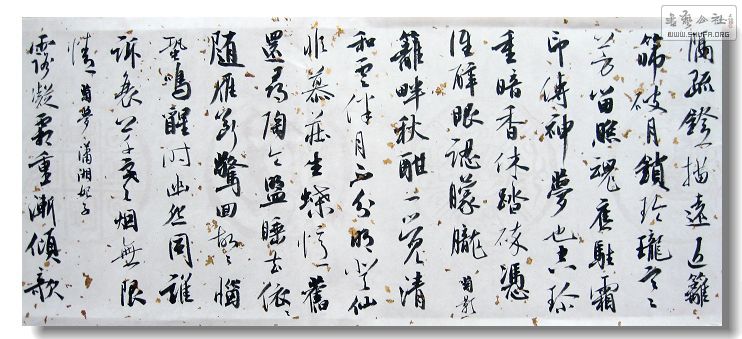 隔疏鐙描遠近籬
篩破月鎖玲瓏寒
芳留照魂應駐霜
印傳神夢也空珍
重暗香休踏碎憑
誰醉眼認朦朧 菊影
籬畔秋酣一覺清
和雲伴月不分明登仙
非慕莊生蝶憶舊
還尋陶令盟睡去依々
隨雁斷驚回故々惱
蛩鳴醒時幽怨同誰
訴衰草寒烟無限
情 菊夢 瀟湘妃子
露凝霜重漸傾欹
书艺公社
WWW.SHUFA.ORG